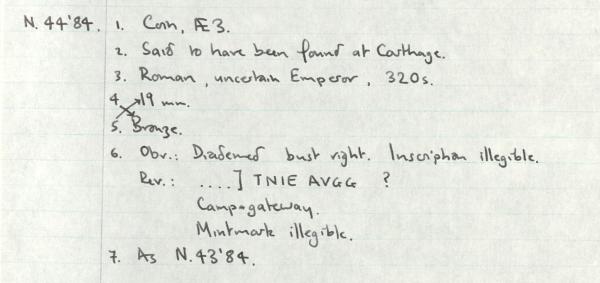 N. 44'84. 1. Coin, Æ3.
2. Said to have been found at Carthage.
3. Roman, uncertain Emperor, 320s.
4. 19 mm.
5. Bronze.
6. Obv.: Diademed bust right. Inscription illegible.
Rev.: ....] TNIE AVGG ?
Camp-gateway.
Mintmark illegible.
7. As N.43'84.